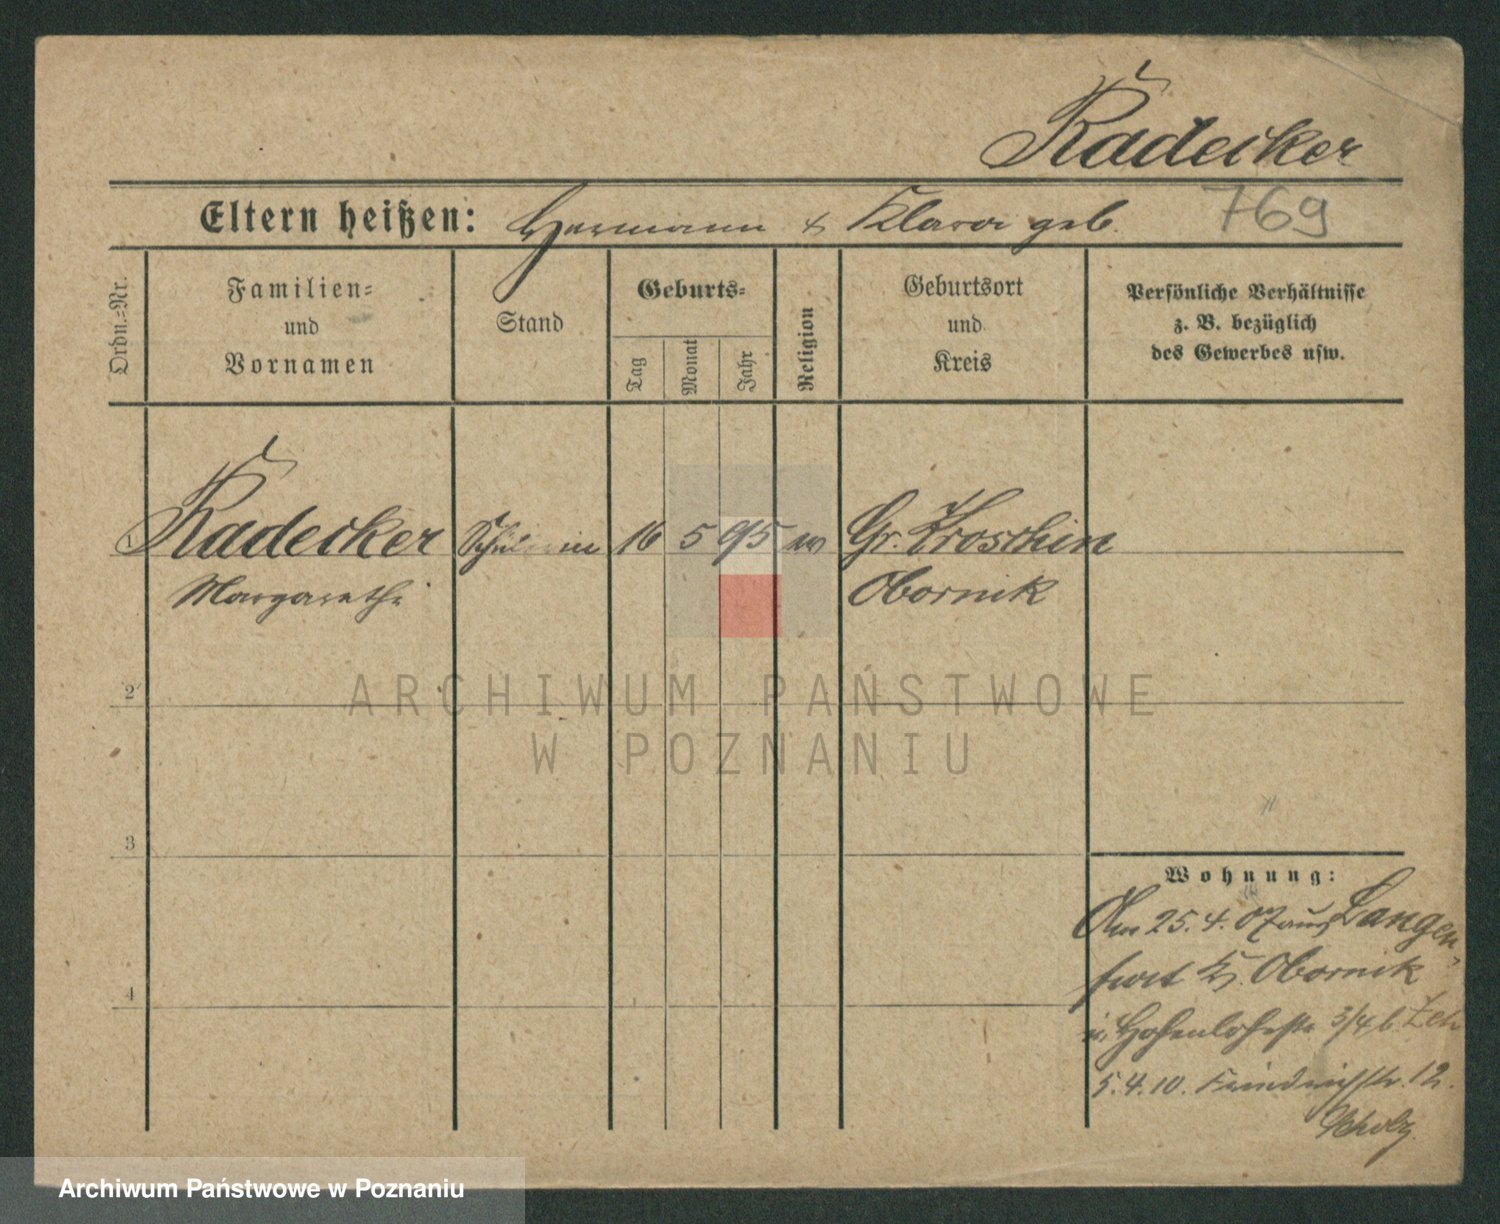 Radecker
Eltern heißen: Hermann & Klara geb.
769
Ordn.=Nr.
Familien=
und
Vornamen
Stand
Geburts=
Tag
Monat
Jahr
Religion
Geburtsort
und
Kreis
Persönliche Verhältnisse
z. B. bezüglich
des Gewerbes usw.
1 Radecker Schülerin 16 5 95 ev Gr. Kroschin
Margarethe Obornik
2
3
4
Wohnung:
Am 25. 4. 07 aus Langen-
furt Kr. Obornik
n. Hohenlohestr. 3/4 b.
5. 4. 10. Friedrichstr. 12.
Scholz
ARCHIWUM PAŃSTWOWE
W POZNANIU
Archiwum Państwowe w Poznaniu